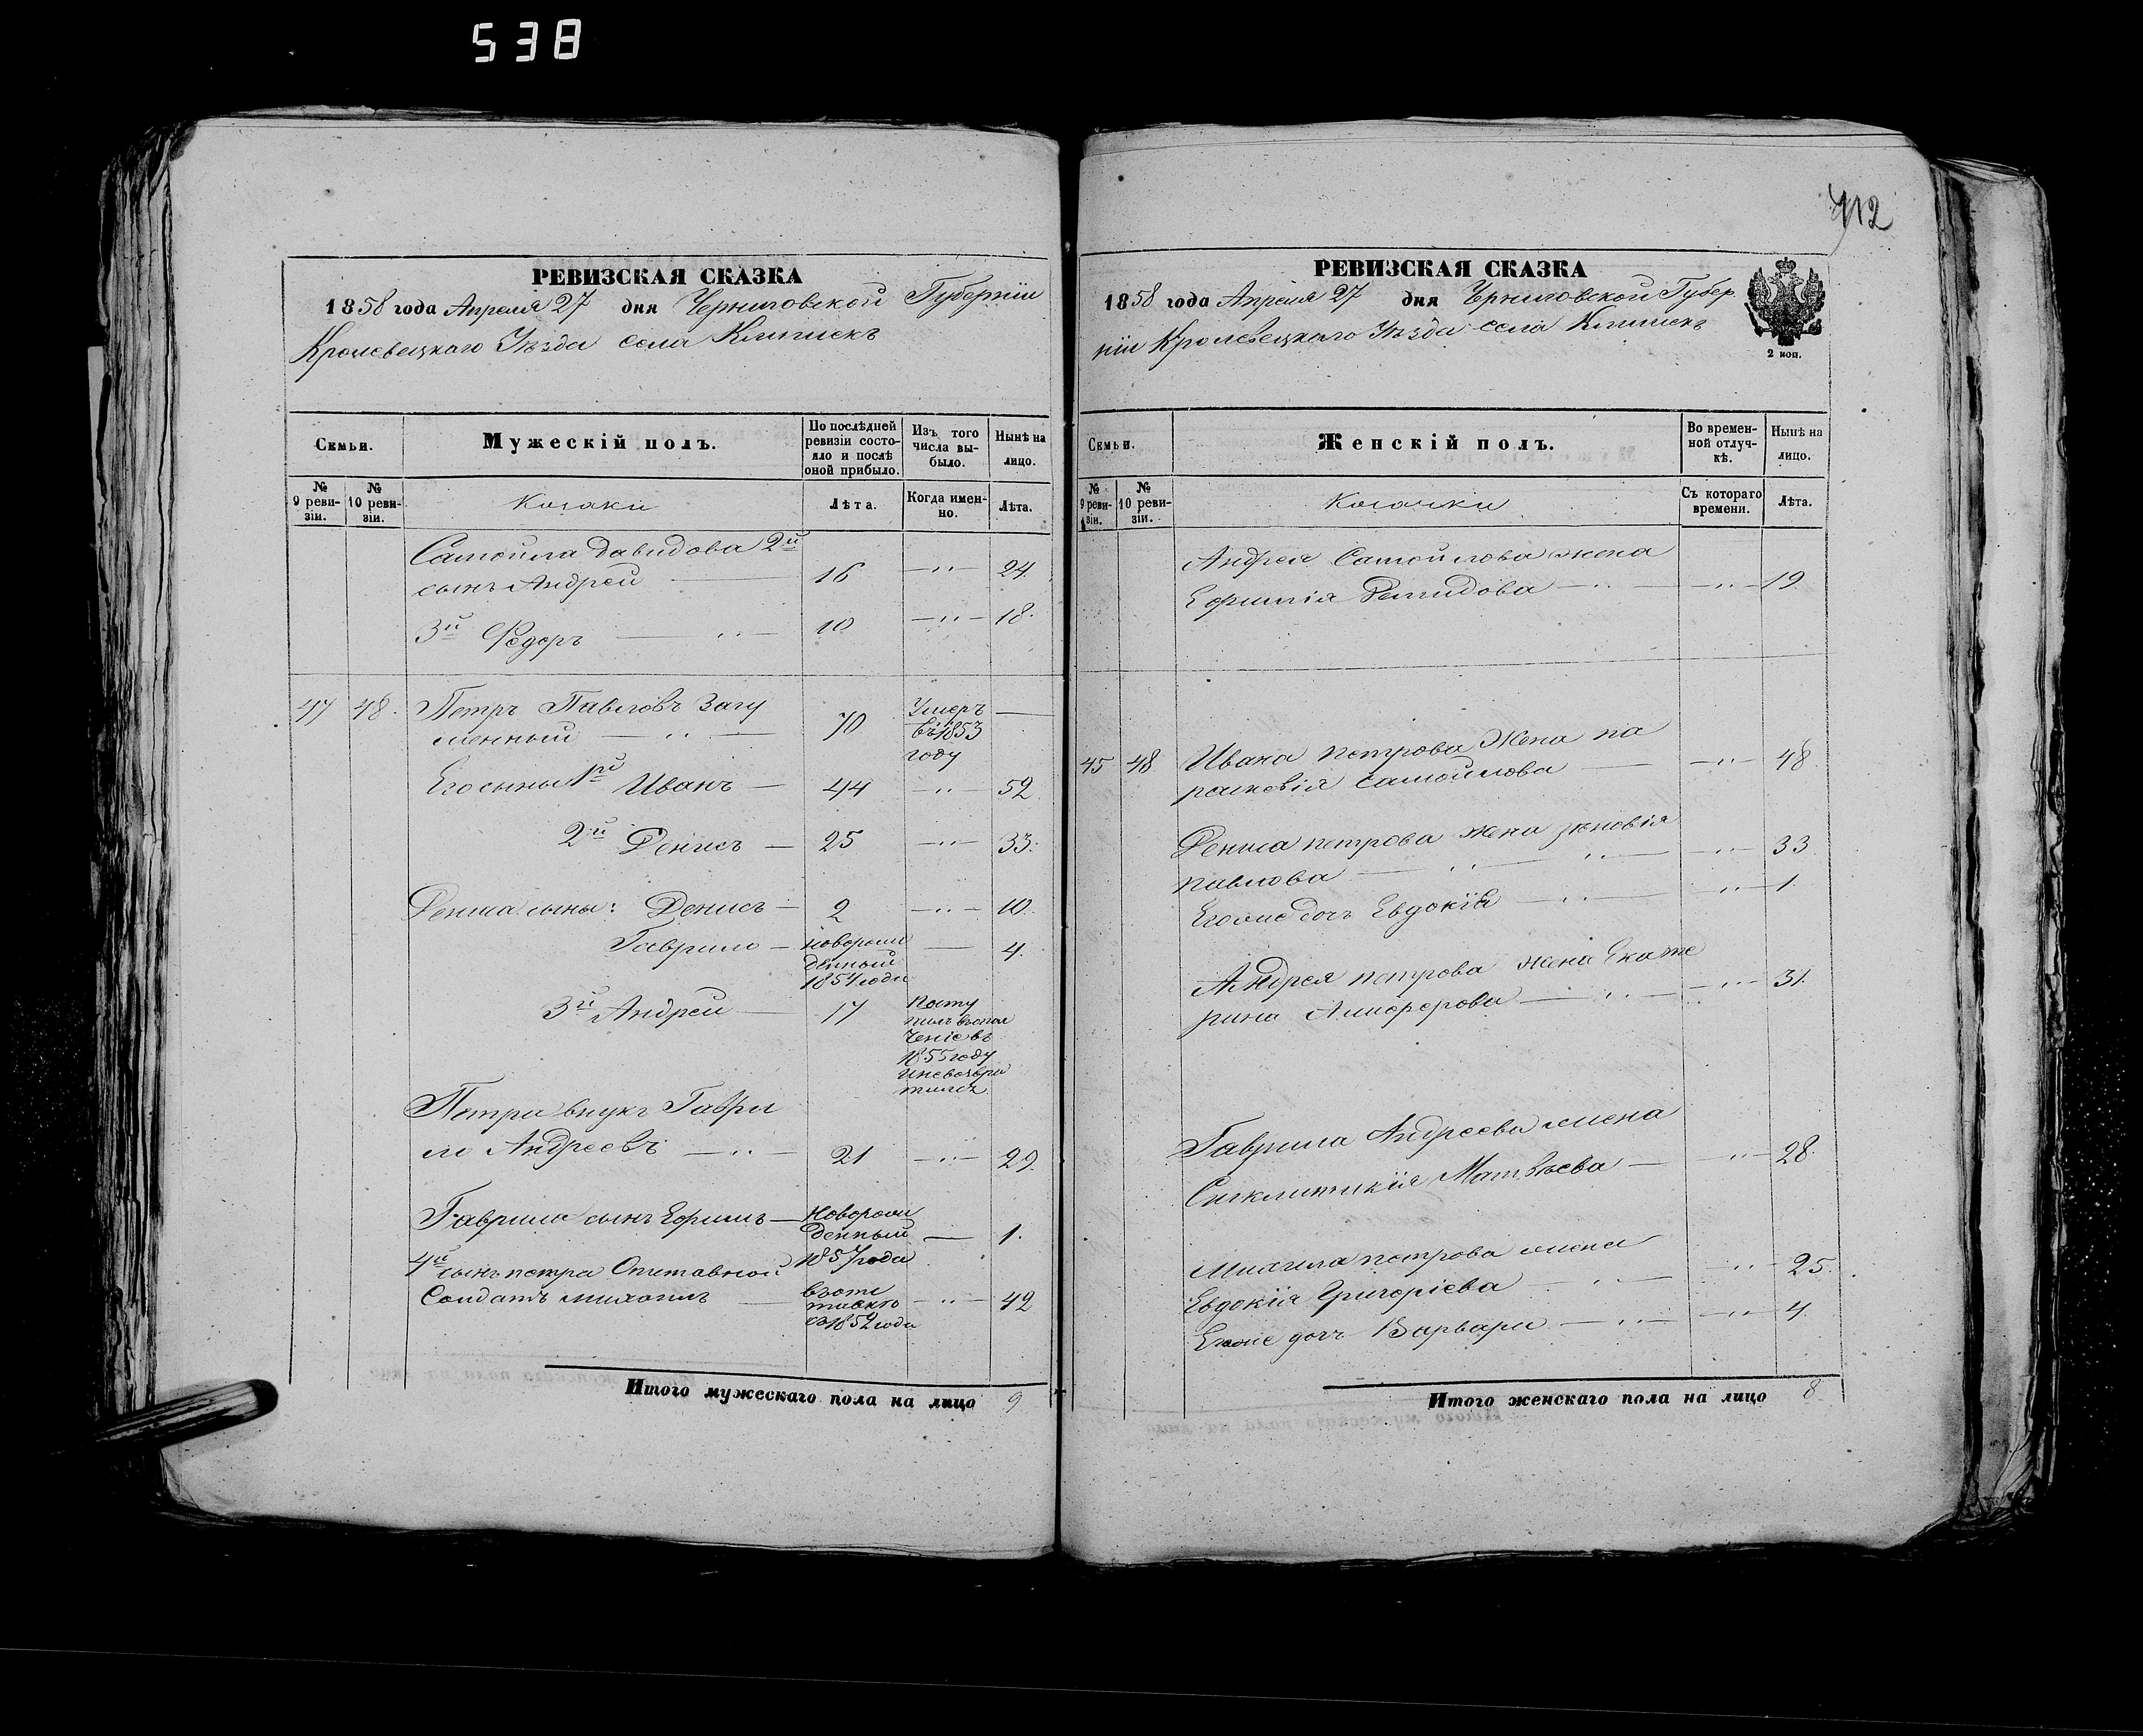 538
712
РЕВИЗСКАЯ СКАЗКА
1858 года Апреля 27 дня Черниговской Губернiи
Кролевецкаго Уѣзда села
Семьи.
Мужескiй полъ.
По послѣдней ревизiи состо-
яло и послѣ оной прибыло.
Изъ того числа вы-
было.
Нынѣ на лицо.
№ 9 реви-
зiи.
№ 10 реви-
зiи.
Козаки
Лѣта.
Когда имен-
но.
Лѣта.
Самойла Давидова 2й
сынъ Андрей 16 24.
3й Федоръ 10 18.
47 48. Петръ Павловъ Загу
менный 70 Умеръ
въ 1853
году
Его сыны 1й Иванъ 44 52.
2й Денисъ 25 33.
Дениса сыны: Денисъ 2 10.
Гаврило новорож
денный
1854 года 4.
3й Андрей 17 Посту
пилъ въ опол
ченiе въ
1855 году
и невозвра
тился
Петра внукъ Гаври
ло Андреевъ 21 29.
Гаврила сынъ Ефимъ Новорож
денный
1857 года 1.
4й сынъ петра Отставной
Солдатъ михаилъ
съ 1852 года 42
Итого мужескаго пола на лицо 9
РЕВИЗСКАЯ СКАЗКА
1858 года Апреля 27 дня Черниговской Губер
нiи Кролевецкаго Уѣзда села
2 коп.
Семьи.
Женскiй полъ.
Во времен-
ной отлуч-
кѣ.
Нынѣ на лицо.
№ 9 реви-
зiи.
№ 10 реви-
зiи.
Козачки
Съ котораго времени.
Лѣта.
Андрея Самойлова жена
Ефимiя Демидова 19.
45 48 Ивана петрова Жена па
раскевiя Самойлова 48.
Дениса петрова жена зѣновiя
павлова 33.
Егоже дочь Евдокiя 1.
Андрея петрова жена Екате
рина 31.
Гаврила Андреева жена
Синклитикiя Матвѣева 28.
Михаила петрова жена
Евдокiя Григорiева 25.
Егоже дочь Варвара 4.
Итого женскаго пола на лицо 8.